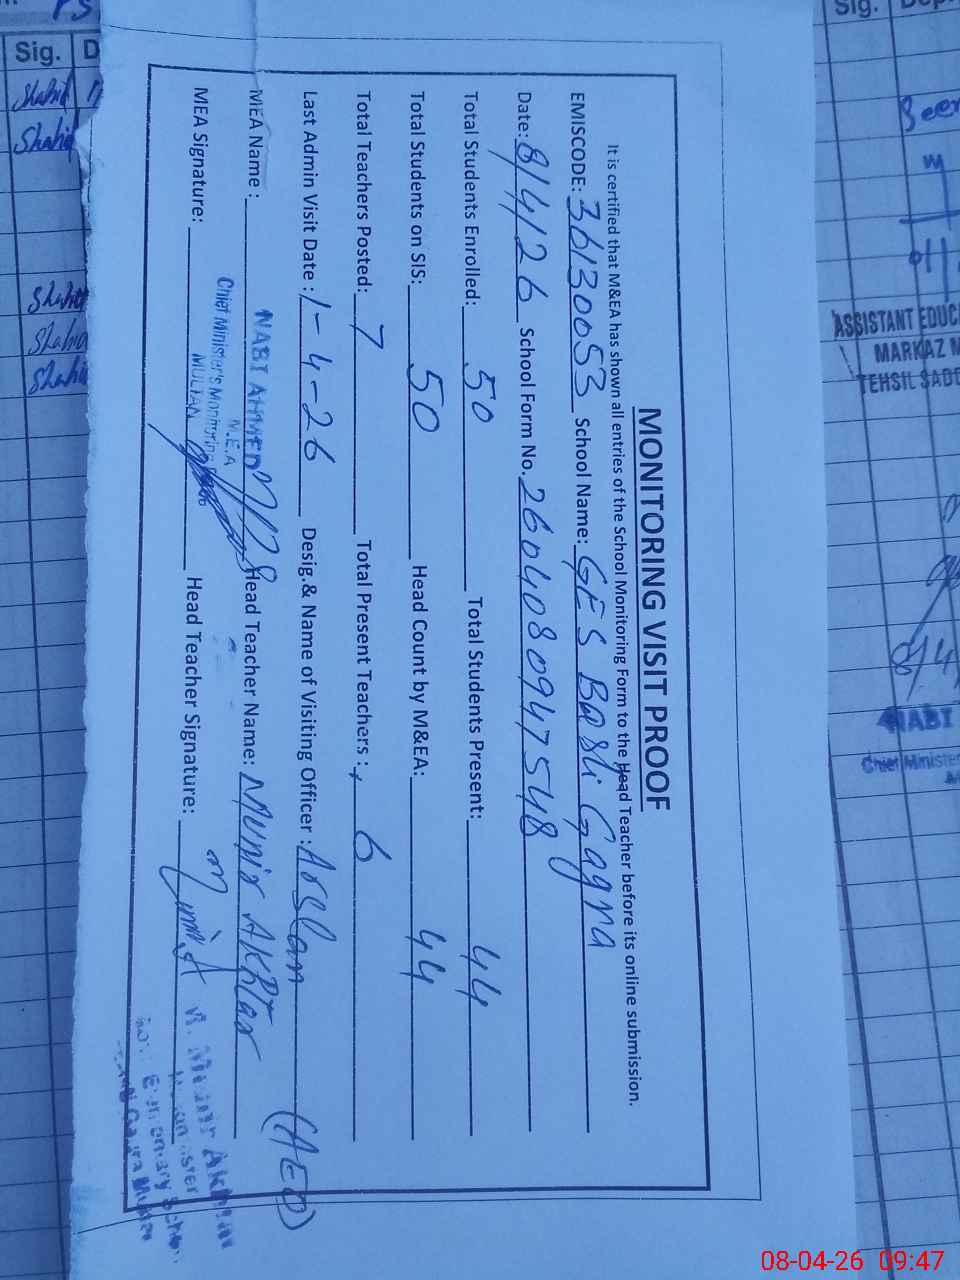 MONITORING VISIT PROOF
It is certified that M&EA has shown all entries of the School Monitoring Form to the Head Teacher before its online submission.
EMISCODE: 36130053 School Name: GES Basti Gagra
Date: 8/4/26 School Form No. 2604080947548
Total Students Enrolled: 50 Total Students Present: 44
Total Students on SIS: 50 Head Count by M&EA: 44
Total Teachers Posted: 7 Total Present Teachers: 6
Last Admin Visit Date: 1-4-26 Desig.& Name of Visiting Officer: Arslan (AEO)
MEA Name: NABI AHMED Head Teacher Name: Munir Akhtar
M.E.A
Chief Minister's Monitoring
MULTAN
MEA Signature: Head Teacher Signature:
Sig.
Shahid
Shahid
Shahid
Shahid
Shahid
Sig.
Seen
ASSISTANT EDUC
MARKAZ M
TEHSIL SADD
8/4
NABI
Chief Minister
08-04-26 09:47